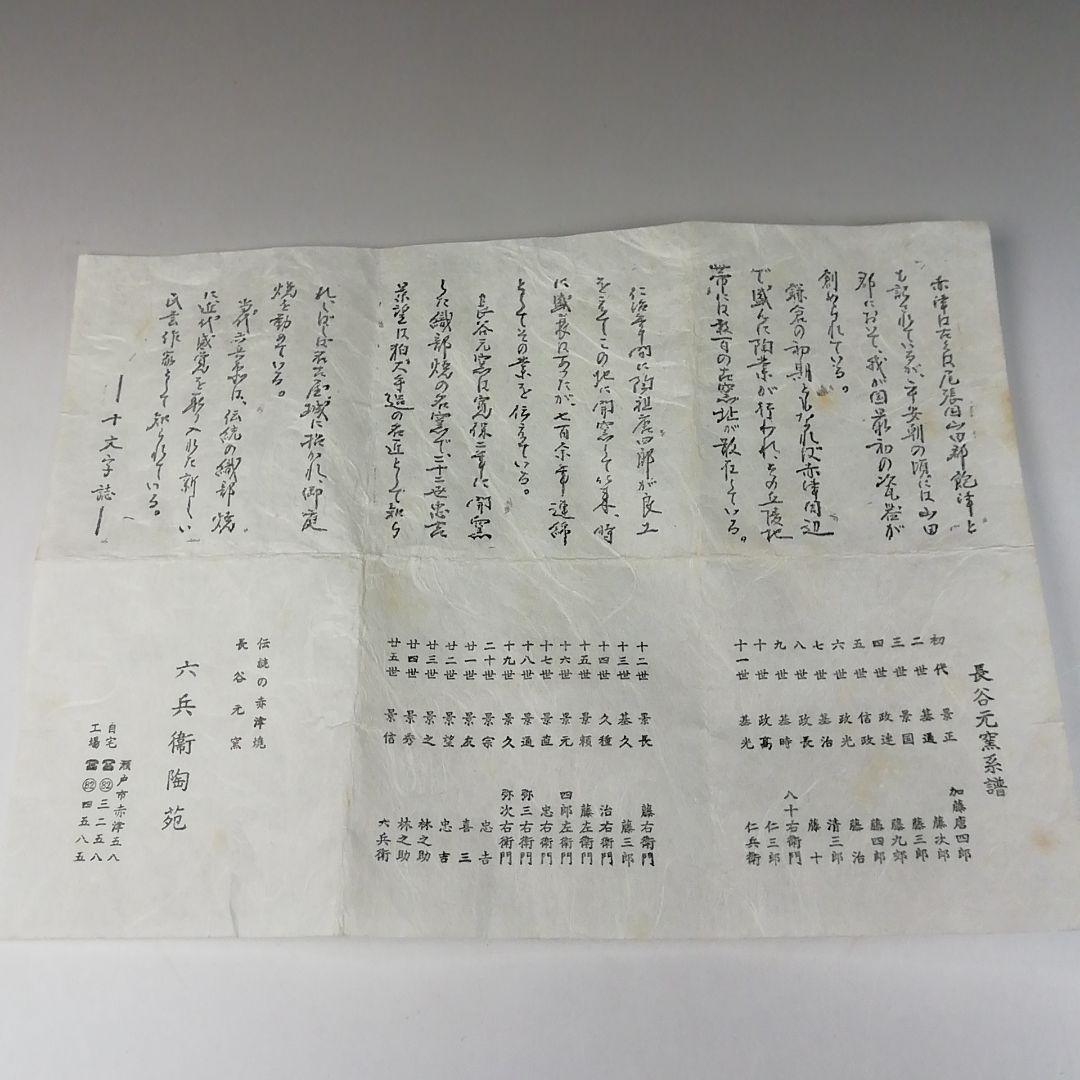 赤津は古くは尾張国山田郡飽津と
も記されているが、平安朝の頃には山田
郡において、我が国最初の瓷器が
創められている。
鎌倉の初期ともなれば赤津周辺
で盛んに陶業が行われ、その丘陵地
帯には数百の古窯址が散在している。
仁治年間に陶祖唐四郎が良工
をえてこの地に開窯して以来、時
に盛衰はあったが、七百余年連綿
としてその業を伝えている。
長谷元窯は寛保二年に開窯
した織部焼の名窯で、二十二世忠吉
景望は狛犬手造の名匠として知ら
れしばしば名古屋城に招かれ御庭
焼を勤めている。
当代六兵衛は、伝統の織部焼
に近代感覚を取り入れた新しい
民芸作家として知られている。
十文字誌
長谷元窯系譜
初代 景正 加藤唐四郎
二世 基通 藤次郎
三世 景国 藤三郎
四世 政連 藤九郎
五世 信政 藤四郎
六世 政光 藤治
七世 基治 清三郎
八世 政長 藤十
九世 基時 八十右衛門
十世 政高 仁三郎
十一世 基光 仁兵衛
十二世 景長 藤右衛門
十三世 基久 藤三郎
十四世 久種 治右衛門
十五世 景頼 藤左衛門
十六世 景元 四郎左衛門
十七世 景直 忠右衛門
十八世 景通 弥三右衛門
十九世 景久 弥次右衛門
二十世 景宗 忠吉
廿一世 景友 喜三
廿二世 景望 忠吉
廿三世 景之 林之助
廿四世 景秀 林之助
廿五世 景信 六兵衛
伝統の赤津焼
長谷元窯
六兵衛陶苑
瀬戸市赤津五八
自宅☎82三二五八
工場☎82四五八五